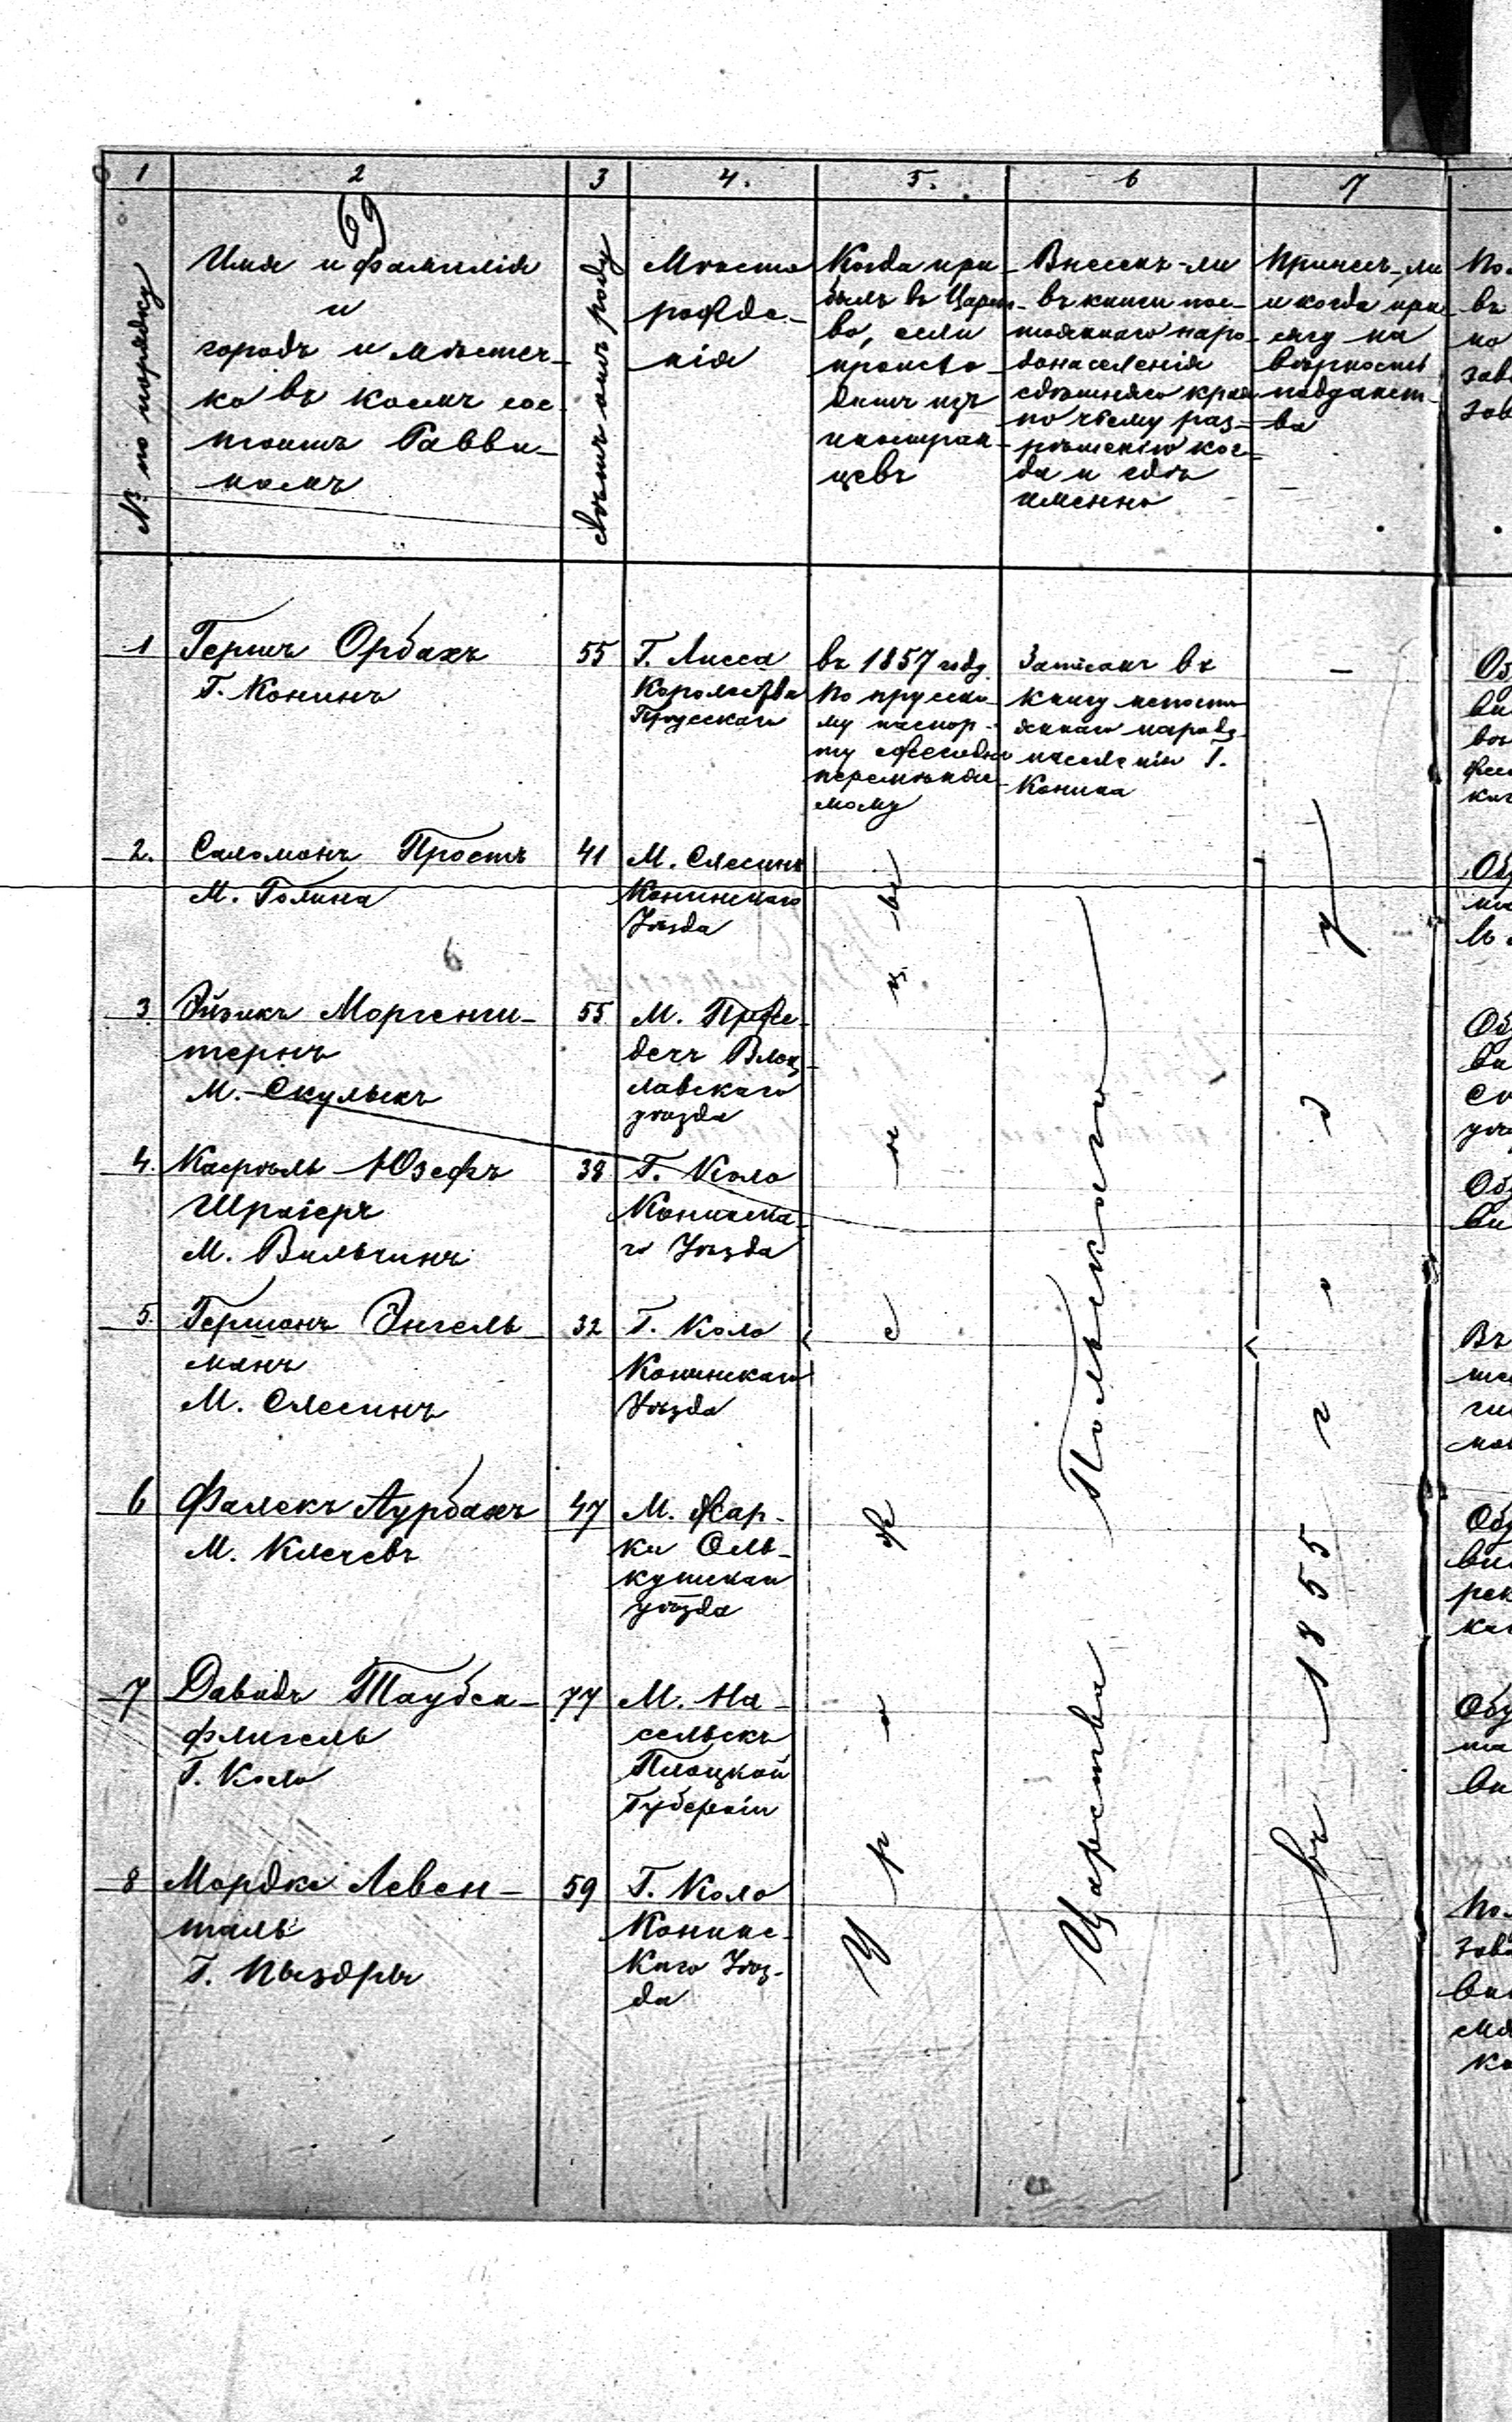 1 2 3 4. 5. 6 7
69
№ по порядку
Имя и фамилія
и
городъ и мѣстеч-
ко въ коемъ сос-
тоитъ Равви-
номъ
Лѣтъ отъ роду
Мѣсто
рожде-
нія
Когда при-
былъ въ Царст-
во, если
происхо-
дитъ изъ
иностран-
цевъ
Внесенъ-ли
въ книги пос-
тояннаго наро-
донаселенія
здѣшняго края
по чьему раз-
рѣшенію ког-
да и гдѣ
именно
Принесъ-ли
и когда при-
сягу на
вѣрность
подданст-
ва
1
Гершъ Орбахъ
Г. Конинъ
55
Г. Лисса
Королевства
Прусскаго
въ 1857 году
по прусско-
му паспор-
ту ежегодно
перемѣняе-
мому
Записанъ въ
книгу непосто-
яннаго народо-
населенія Г.
Конина
—
2.
Саломонъ Простъ
М. Голина
41
М. Слесинъ
Конинскаго
Уѣзда
3.
Эйзикъ Моргенш-
тернъ
М. Скульскъ
55
М. Пржe-
дечъ Влоц-
лавскаго
уѣзда
4.
Касріэль Юзефъ
Шраіеръ
М. Вильчинъ
38
Г. Коло
Конинска-
го Уѣзда
5.
Германъ Энгель-
манъ
М. Слесинъ
32
Г. Коло
Конинскаго
Уѣзда
6
Фалекъ Аурбахъ
М. Клечевъ
47
М. Жар-
ки Оль-
кушскаго
уѣзда
7
Давидъ Таубен-
флигель
Г. Коло
77
М. На-
сельскъ
Плоцкой
Губерніи
8
Мордка Левен-
таль
Г. Пыздры
59
Г. Коло
Конинс-
каго Уѣз-
да
Уроженцы
Царства Польскаго
въ 1855 году